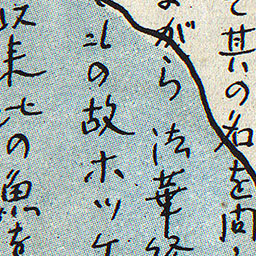 と其の名を問
ながら法華経
北の故ホッケ
以来此の魚を